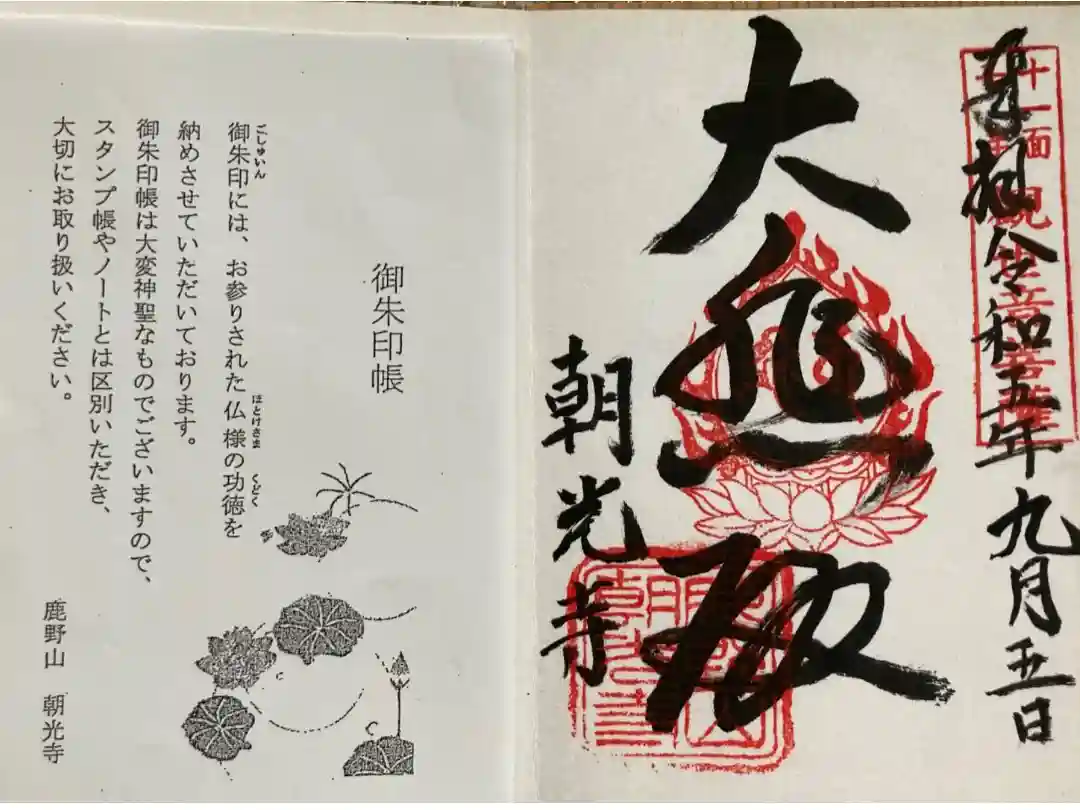 奉拝令和五年九月五日
十一面
観世音菩薩
大悲殿
朝光寺
御朱印帳
御朱印には、お参りされた仏様の功徳を
ごしゅいん
ほとけさま
くどく
納めさせていただいております。
御朱印帳は大変神聖なものでございますので、
スタンプ帳やノートとは区別いただき、
大切にお取り扱いください。
鹿野山 朝光寺